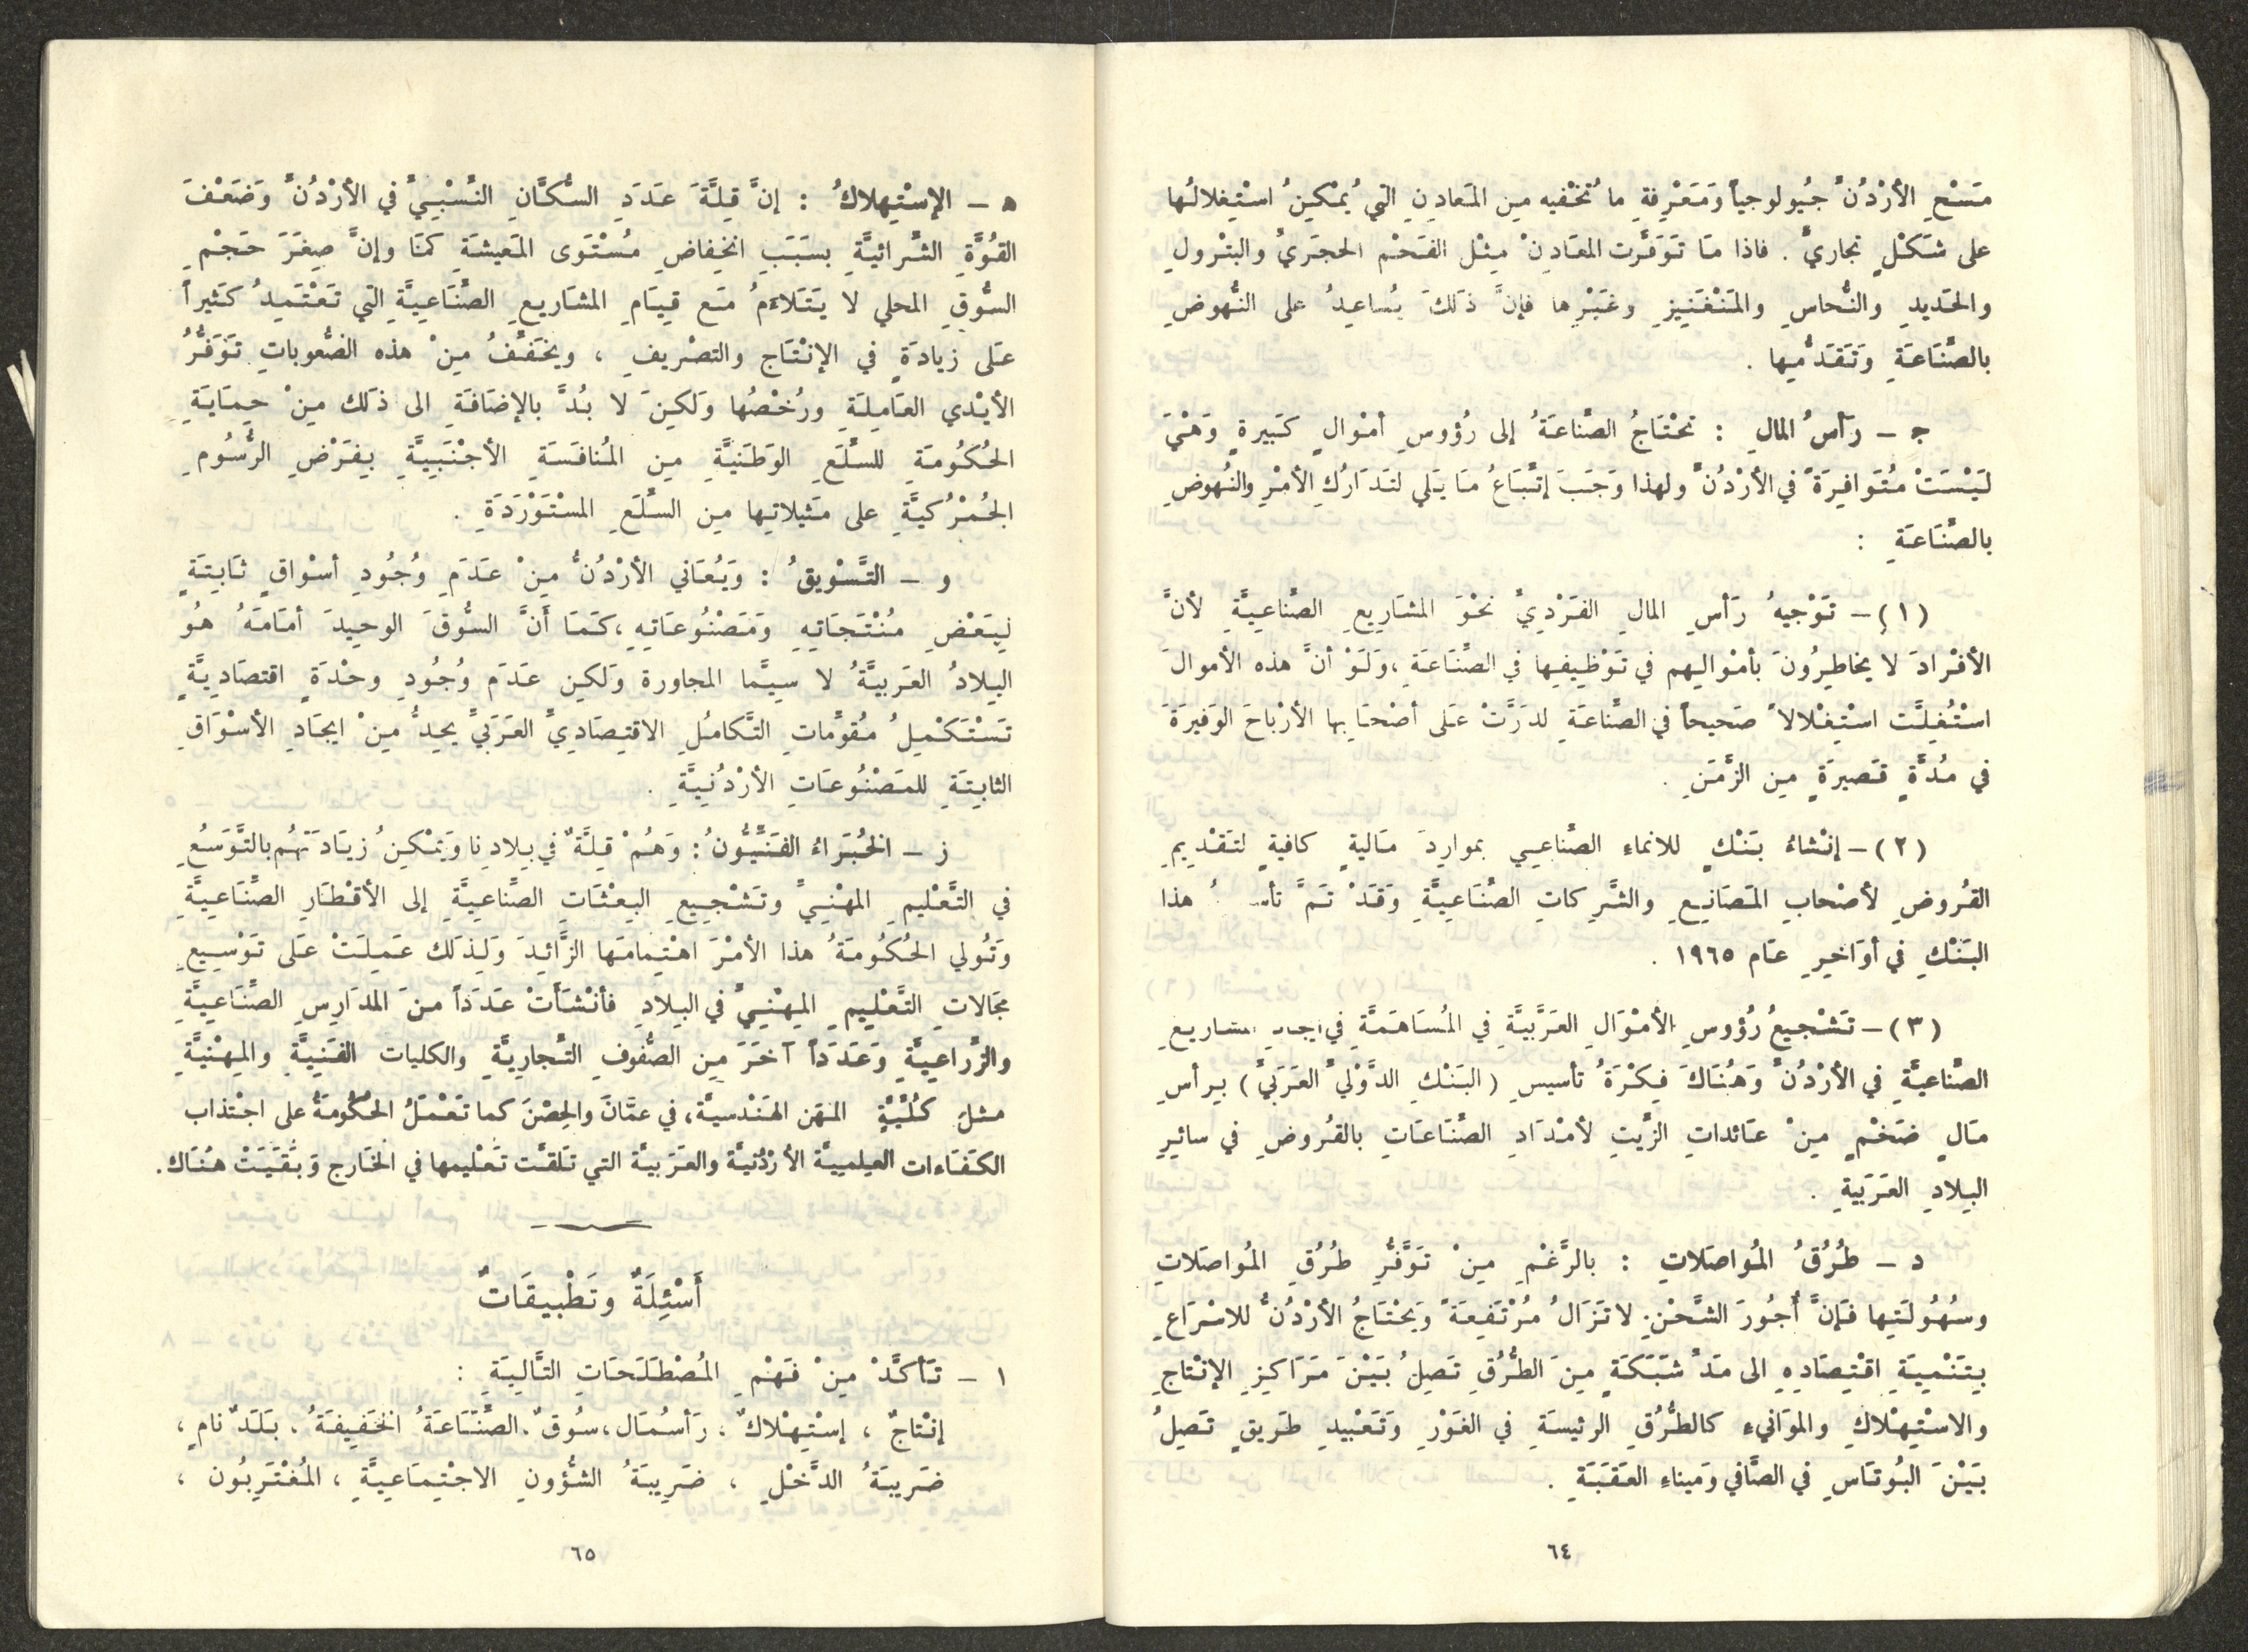 مَسْحِ الأرْدُنِّ جُيُولوجياً وَمَعْرِفةِ ما تُخْفيه مِن المَعادِنِ التي يُمْكِنُ اسْتِغلالُها
على شَكْلٍ تجاريٍّ . فاذا مَا تَوَفَّرت المعَادِنْ مِثْل الفَحْم الحجَريِّ والبتْرولِ
والحَديدِ والنُّحاسِ والمَنْغَنِيزِ وغَيْرِها فإنَّ ذلكَ يُساعِدُ على النُّهوضِ
بالصِّنَاعَةِ وَتَقَدُّمِها .
جـ – رَأسُ المالِ : تحْتَاجُ الصِّناعَةُ إلى رُؤوسِ أمْوالٍ كَبيرةٍ وَهْيَ
لَيْسَتْ مُتَوافِرَةً في الأرْدُنِّ ولهذا وَجَبَ إتِّبَاعُ مَا يَلي لتَدَارُكِ الأمْرِ والنُهوضِ
بالصِّنَاعَةِ :
(١) – تَوْجيهُ رَأسِ المالِ الفَرْدِيِّ نحْوَ المشَاريعِ الصِّناعِيَّةِ لأنَّ
الأفْرادَ لا يخاطِرُونَ بأمْوالِهم في تَوْظِيفِها في الصِّنَاعَةِ ، وَلَوْ أنَّ هذه الأموالَ
اسْتُغِلَّت اسْتِغْلالاً صَحيحاً في الصِّناعَةِ لدَرَّتْ عَلى أصْحَابِها الأرْباحَ الوَفيرَةَ
في مُدَّةٍ قَصيرَةٍ مِن الزَّمَنِ .
(٢) – إنْشاءُ بَنْكٍ للانماءِ الصِّناعِي بموارِدَ مَاليةٍ كافيةٍ لتَقْدِيمِ
القُروضِ لأصْحابِ المَصَانِعِ والشَّرِكاتِ الصِّنَاعِيَّةِ وَقَدْ تَمَّ هذا
البَنْكِ في أوَاخيرِ عَام ١٩٦٥ .
(٣) – تَشْجيعُ رُؤوسِ الأمْوَالِ العَرَبيَّةِ في المُسَاهَمَةِ في ايجاد المشاريعِ
الصِّناعيَّةِ في الأرْدُنِّ وَهُنَاكَ فِكْرَةُ تأسيسِ (البَنْكِ الدَّوْليِّ العَرَبيِّ) بِرأسِ
مَالٍ ضَخْمٍ مِنْ عَائداتِ الزَّيتِ لأمْدَادِ الصِّنَاعَاتِ بالقُروضِ في سائِرِ
البِلادِ العَرَبيةِ .
د – طُرُقُ المُواصَلاتِ : بالرَّغْمِ مِنْ تَوَفُّرِ طُرُقِ المُواصَلاتِ
وسُهُولَتِها فَإنَّ أُجُورَ الشَّحْنِ لا تَزَالُ مُرْتَفِعَةً وَيحْتَاجُ الأرْدُنُّ للاسْرَاعِ
بِتَنْمِيَةِ اقْتِصَادِهِ الى مَدِّ شَبَكَةٍ مِنَ الطُّرُقِ تَصِلُ بَيْنَ مَرَاكِزِ الإنْتاجِ
والاسْتِهْلاكِ والموَانيءِ كالطُّرُقِ الرئيسَةِ في الغَوْرِ وَتَعْبيدِ طَريقٍ تَصِلُ
بَيْنَ البُوتَاسِ في الصَّافي وَميناءِ العَقَبَةِ .
٦٤
هـ – الإسْتِهلاكُ : إنَّ قِلَّةَ عَدَدِ السُّكَّانِ النِّسْبِيِّ في الأرْدُنِّ وَضَعْفَ
القُوَّةِ الشِّرائيَّةِ بسَبَبِ انخِفاضِ مُسْتَوى المَعيشَةِ كمَا وإنَّ صِغَرَ حَجْمِ
السُّوقِ المحلي لا يَتَلاءَمُ مَع قِيَامِ المشَاريعِ الصِّنَاعِيَّةِ التي تَعْتَمِدُ كَثيراً
عَلى زيادَةٍ في الإنْتَاجِ والتصْريفِ ، ويخَفِّفُ مِنْ هذه الصُّعوباتِ تَوَفُّرُ
الأيْدي العَامِلَةِ ورُخْصُها وَلكِنَ لا بُدَّ بالإضَافَةِ الى ذلك مِنْ حِمَايَةِ
الحُكُومَةِ للسِّلَعِ الوَطَنيَّةِ مِن المُنافَسَةِ الأجْنَبِيَّةِ بِفَرْضِ الرُّسُومِ
الجُمْرُكيَّةِ على مَثيلاتِها مِن السِّلَعِ المسْتَوْرَدَةِ .
و – التَّسْويقُ : وَيُعَاني الأرْدُنُّ مِنْ عَدَمِ وُجُودِ أسْواقٍ ثَابِتَةٍ
لِبَعْضِ مُنْتَجَاتِهِ وَمَصْنُوعَاتِهِ ، كَمَا أنَّ السُّوقَ الوحِيدَ أمَامَهُ هُو
البِلادُ العَربيَّةُ لا سِيَّما المجاورة وَلكِن عَدَمَ وُجُودِ وحْدَةٍ اقتصَادِيَّةٍ
تَسْتَكْمِلُ مُقوِّماتِ التَّكامُلِ الاقتِصَادِيِّ العَرَبيِّ يحِدُّ مِنْ ايجَادِ الأسْوَاقِ
الثابِتَةِ للمَصْنُوعَاتِ الأرْدُنِيَّةِ .
ز – الخُبَرَاءُ الفَنِّيُّونُ : وَهُمْ قِلَّةٌ في بِلادِنا وَيَمْكِنُ زيَادَتُهُم بالتَّوَسُّعِ
في التَّعْليمِ المهْنيِّ وتَشْجِيعِ البِعْثَاتِ الصِّناعِيَّةِ إلى الأقْطَارِ الصِّنَاعِيَّةِ
وَتُولي الحُكُومَةُ هذا الأمْرَ اهْتِمامَها الزَّائِدَ وَلِذلك عَمِلَتْ عَلى تَوْسِيعِ
مجَالاتِ التَّعْلِيمِ المِهْنِيِّ في البِلادِ فأنْشَأَتْ عَدَدَاً مِنَ المدَارِسِ الصِّنَاعِيَّةِ
والزِّراعيَّةِ وَعَدَدَاً آخَرَ مِن الصُّفوفِ التِّجارِيَّةِ والكليات الفَنِيَّةِ والمِهْنيَّةِ
مثلَ كُلِّيَّةِ المهَن الهَنْدسيَّة ، في عمَّانَ والحِصْنَ كما تَعْمَلُ الحُكُومَةُ على اجْتذاب
الكَفَاءات العِلميَّة الأرْدُنيَّة والعَرَبيَّة التي تلَقَّت تَعْليمها في الخَارج وَبَقَيَتْ هُنَاك .
أَسْئِلَةٌ وتَطْبيقَاتٌ
١ – تَأكَّدْ مِنْ فَهْمِ المُصْطَلَحَاتِ التَّالِيَةِ :
إنْتاجٌ ، إسْتِهْلاكٌ ، رَأسُمَال ، سُوقٌ . الصِّنَاعَةُ الخَفِيفَةُ ، بَلَدٌ نامٍ ،
ضَريبَةُ الدَّخْلِ ، ضَرِيبَةُ الشُّؤونِ الاجْتِمَاعِيَّةِ ، المُغْتَرِبُون ،
٦٥